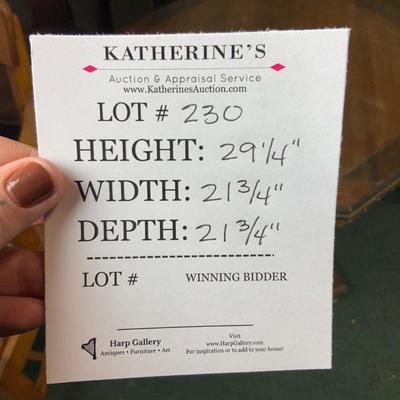 KATHERINE'S
Auction & Appraisal Service
www.KatherinesAuction.com
LOT # 230
HEIGHT: 29 1/4"
WIDTH: 21 3/4"
DEPTH: 21 3/4"
LOT # WINNING BIDDER
Harp Gallery
Antiques • Furniture • Art
Visit
www.HarpGallery.com
For inspiration or to add to your home!